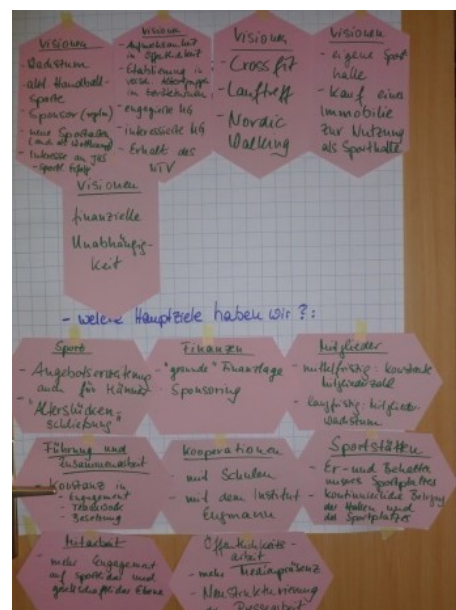 Visionen
- Wachstum
- abt. Handball-
sparte
- Sponsor
- neue Sportarten
- Interesse an
Visionen
- Aufmerksamkeit
in Öffentlichkeit
- Etablierung in
- engagierte MG
- interessierte MG
- Erhalt des
MTV
Visionen
- Crossfit
- Lauftreff
- Nordic
Walking
Visionen
- eigene Sport
halle
- Kauf einer
Immobilie
zur Nutzung
als Sporthalle
Visionen
finanzielle
Unabhängig-
keit
- welche Hauptziele haben wir?:
Sport
- Angebotserweiterung
auch für Männer
- "Alterslücken-
schließung"
Finanzen
- "gesunde" Finanzlage
- Sponsoring
Mitglieder
- mittelfristig: konstante
Mitgliederzahl
- langfristig: Mitglieder-
wachstum
Führung und
Zusammenarbeit
Konstanz in
- Engagement
- Teamwork
- Besetzung
Kooperationen
- mit Schulen
- mit dem Institut
Engmann
Sportstätten
- Er- und Behalten
unseres Sportplatzes
- kontinuierliche Belegung
der Hallen und
des Sportplatzes
Mitarbeit
- mehr Engagement
auf sportlicher und
gesellschaftlicher Ebene
Öffentlichkeits-
arbeit
- mehr Medienpräsenz
- Neustrukturierung
der Pressearbeit